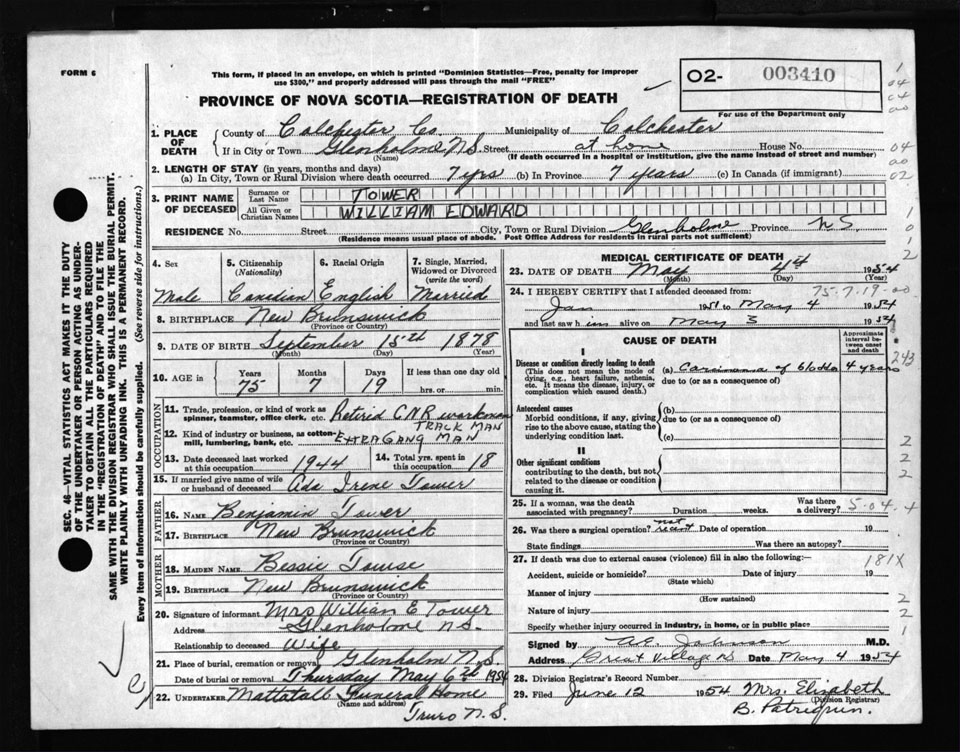 FORM 6
This form, if placed in an envelope, on which is printed "Dominion Statistics—Free, penalty for improper
use $300," and properly addressed will pass through the mail "FREE"
02- 003410
For use of the Department only
PROVINCE OF NOVA SCOTIA—REGISTRATION OF DEATH
1. PLACE OF DEATH
County of Colchester Co. Municipality of Colchester
If in City or Town Glenholme N.S. Street at home House No.
(Name) (If death occurred in a hospital or institution, give the name instead of street and number)
2. LENGTH OF STAY (in years, months and days)
(a) In City, Town or Rural Division where death occurred 7 yrs (b) In Province 7 years (c) In Canada (if immigrant)
3. PRINT NAME OF DECEASED
Surname or Last Name TOWER
All Given or Christian Names WILLIAM EDWARD
RESIDENCE No. Street City, Town or Rural Division Glenholme Province N.S.
(Residence means usual place of abode. Post Office Address for residents in rural parts not sufficient)
SEC. 46—VITAL STATISTICS ACT MAKES IT THE DUTY
OF THE UNDERTAKER OR PERSON ACTING AS UNDER-
TAKER TO OBTAIN ALL THE PARTICULARS REQUIRED
IN THE "REGISTRATION OF DEATH" AND TO FILE THE
SAME WITH THE DIVISION REGISTRAR WHO SHALL ISSUE THE BURIAL PERMIT.
WRITE PLAINLY WITH UNFADING INK. THIS IS A PERMANENT RECORD.
Every item of information should be carefully supplied. (See reverse side for instructions.)
4. Sex Male
5. Citizenship (Nationality) Canadian
6. Racial Origin English
7. Single, Married, Widowed or Divorced (write the word) Married
8. BIRTHPLACE New Brunswick
(Province or Country)
9. DATE OF BIRTH September 15th 1878
(Month) (Day) (Year)
10. AGE in Years 75 Months 7 Days 19 If less than one day old hrs. or min.
OCCUPATION
11. Trade, profession, or kind of work as spinner, teamster, office clerk, etc. Retrid C.N.R workman
TRACK MAN
12. Kind of industry or business, as cotton-mill, lumbering, bank, etc. EXTRAGANG MAN
13. Date deceased last worked at this occupation 1944
14. Total yrs. spent in this occupation 18
15. If married give name of wife or husband of deceased Ada Irene Tower
FATHER
16. NAME Benjamin Tower
17. BIRTHPLACE New Brunswick
(Province or Country)
MOTHER
18. MAIDEN NAME Bessie Towse
19. BIRTHPLACE New Brunswick
(Province or Country)
20. Signature of informant Mrs William E Tower
Address Glenholme N.S.
Relationship to deceased Wife
21. Place of burial, cremation or removal Glenholm N.S.
Date of burial or removal Thursday May 6th 1954
22. UNDERTAKER Mattatall Funeral Home
(Name and address)
Truro N.S.
MEDICAL CERTIFICATE OF DEATH
23. DATE OF DEATH May 4th 1954
(Month) (Day) (Year)
75-7-19-00
24. I HEREBY CERTIFY that I attended deceased from:
Jan 1951 to May 4 1954
and last saw him alive on May 3 1954
CAUSE OF DEATH
Approximate interval between onset and death
I
Disease or condition directly leading to death
(This does not mean the mode of dying, e.g., heart failure, asthenia, etc. It means the disease, injury, or complication which caused death.)
(a) Carcinoma of bladder 4 years
due to (or as a consequence of)
Antecedent causes
Morbid conditions, if any, giving rise to the above cause, stating the underlying condition last.
(b)
due to (or as a consequence of)
(c)
II
Other significant conditions
contributing to the death, but not related to the disease or condition causing it.
25. If a woman, was the death associated with pregnancy? Duration weeks. Was there a delivery?
5-04.4
26. Was there a surgical operation? not recent Date of operation 19
State findings Was there an autopsy?
27. If death was due to external causes (violence) fill in also the following:
181X
Accident, suicide or homicide? Date of injury 19
(State which)
Manner of injury
(How sustained)
Nature of injury
Specify whether injury occurred in industry, in home, or in public place
Signed by A.E. Johnson M.D.
Address Great Village NS Date May 4 1954
28. Division Registrar's Record Number
29. Filed June 12 1954 Mrs. Elizabeth
(Division Registrar)
B. Patriquin.
1
04
04
00
04
00
02
1
0
1
2
243
2
2
2
2
2
1